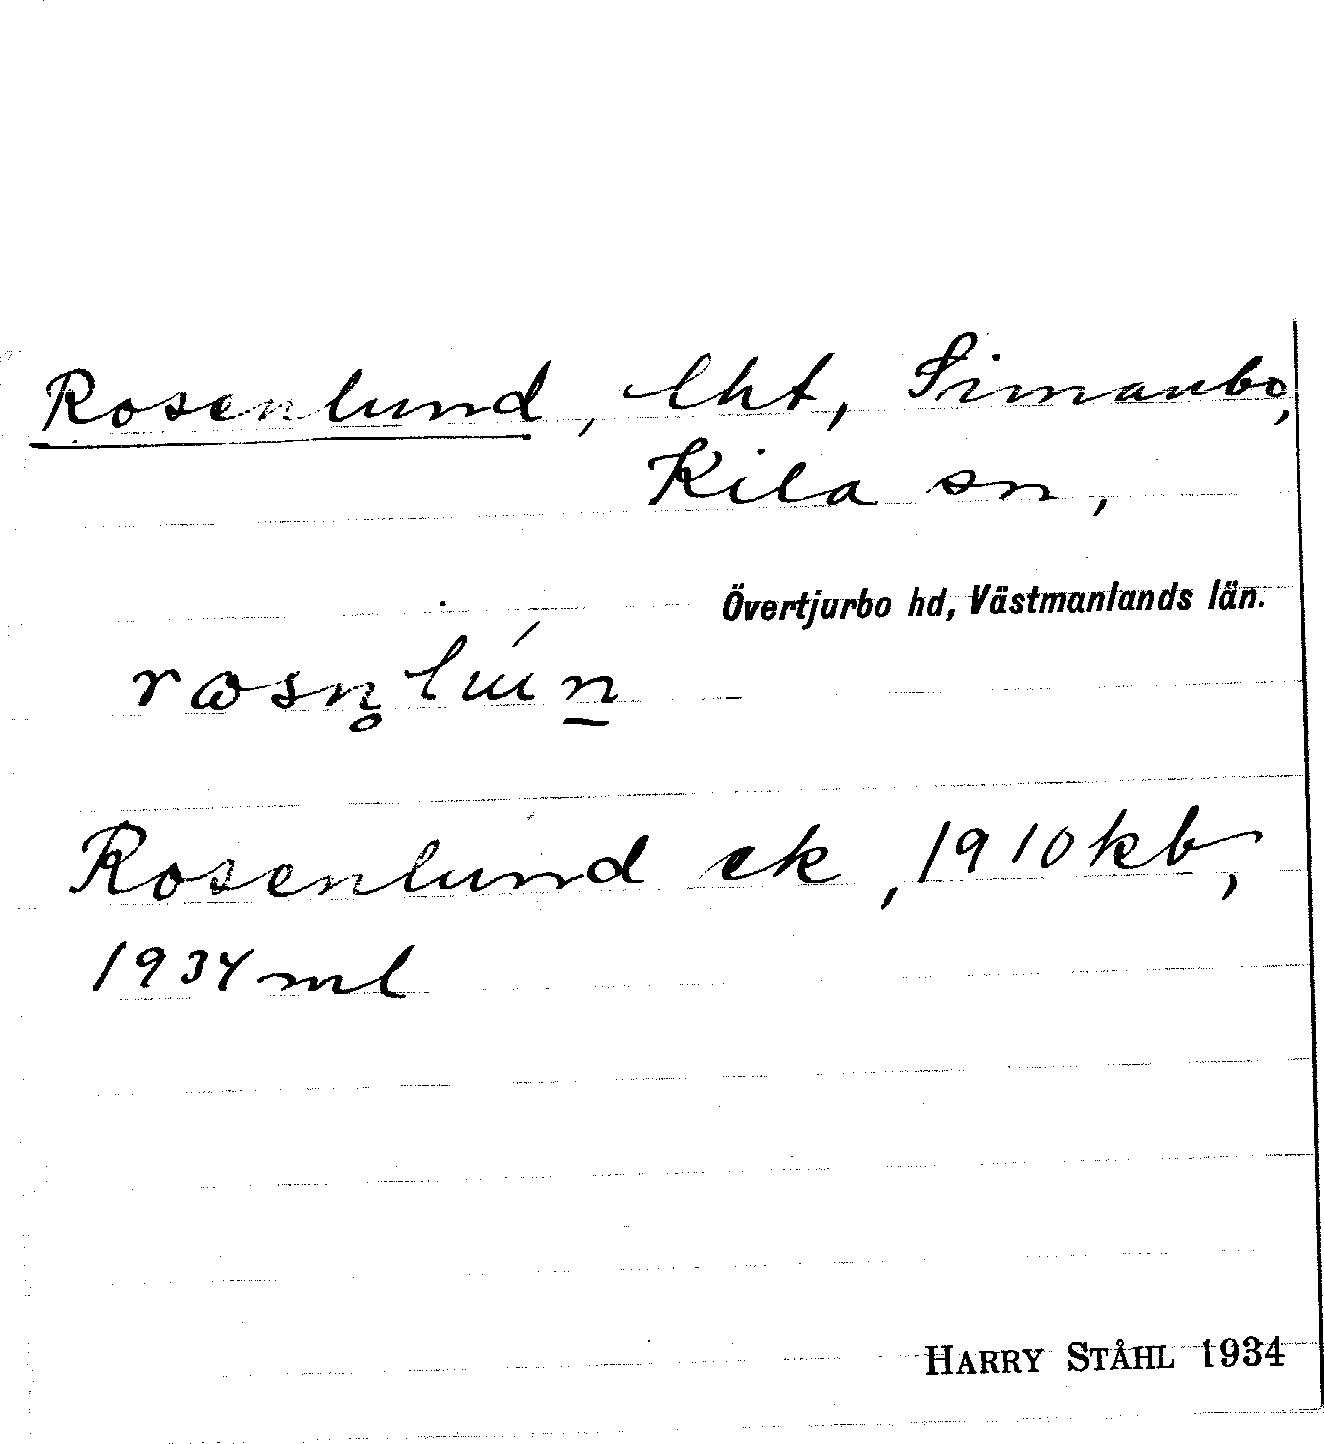 Rosenlund, lht, Simanbo,
Kila sn,
Övertjurbo hd, Västmanlands län.
rɷsn̥lún̲
Rosenlund ek, 1910 kb,
1934 ml
HARRY STÅHL 1934